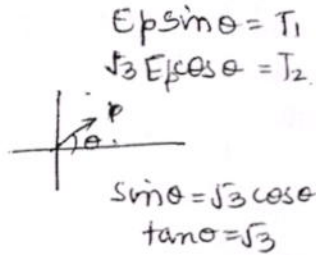 Epsinθ = T₁
√3 Epcosθ = T₂
p
θ
sinθ = √3 cosθ
tanθ = √3